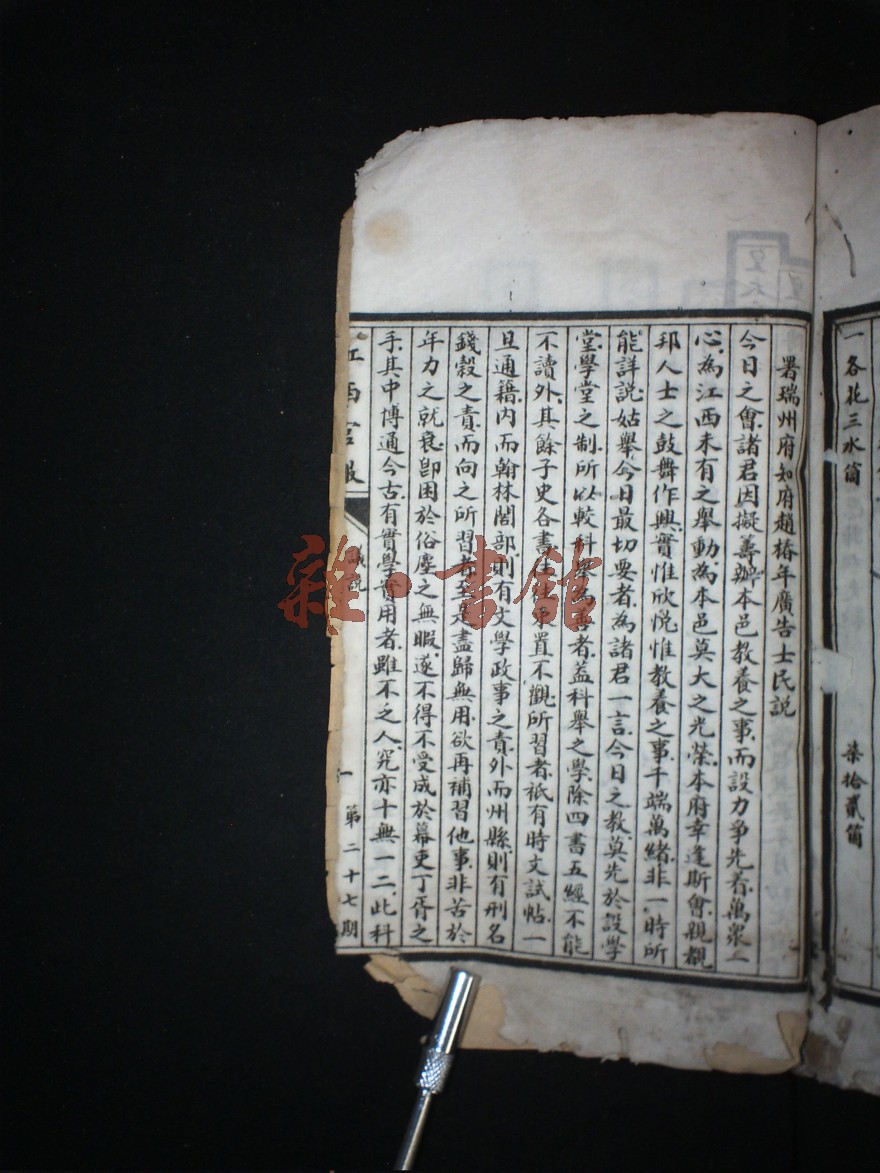 一各花三水筒 柒拾貳筒
署瑞州府知府趙椿年廣告士民說
今日之會諸君因擬籌辦本邑教養之事而設力爭先着萬衆一
心為江西未有之舉動為本邑莫大之光榮本府幸逢斯會親覩
邦人士之鼓舞作興實惟欣悅惟教養之事千端萬緒非一時所
能詳說姑舉今日最切要者為諸君一言今日之教莫先於設學
堂學堂之制所以較科舉為善者蓋科舉之學除四書五經不能
不讀外其餘子史各書往往束置不觀所習者祇有時文試帖一
旦通籍內而翰林閣部則有文學政事之責外而州縣則有刑名
錢穀之責而向之所習者至是盡歸無用欲再補習他事非苦於
年力之就衰卽困於俗塵之無暇遂不得不受成於幕吏丁胥之
手其中博通今古有實學實用者雖不乏人究亦十無一二此科
江西官報 論說 一 第二十七期
雜·書館